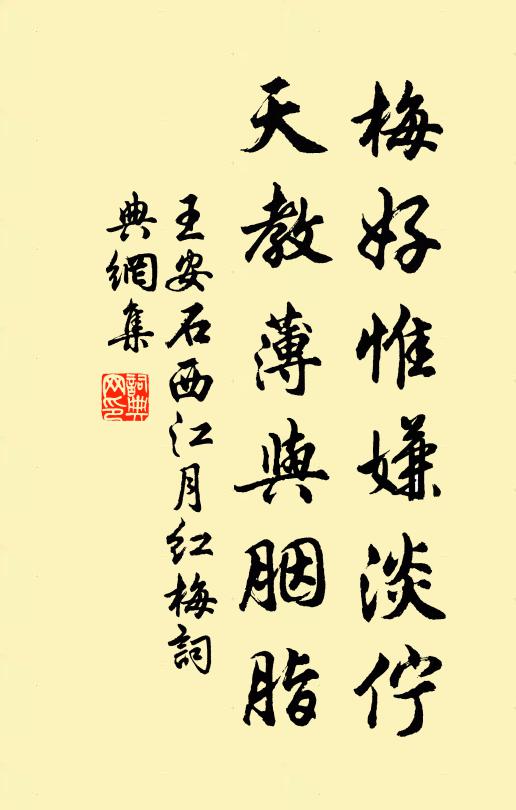 梅好惟嫌淡佇
天教薄與胭脂
王安石西江月红梅詞
典網集
詞典網印